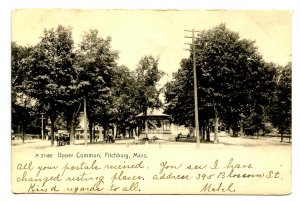 A 21488 Upper Common, Fitchburg, Mass.
all your postals received. You see I have
changed resting place, address 395 Blossom St.
Kind regards to all. Mabel.